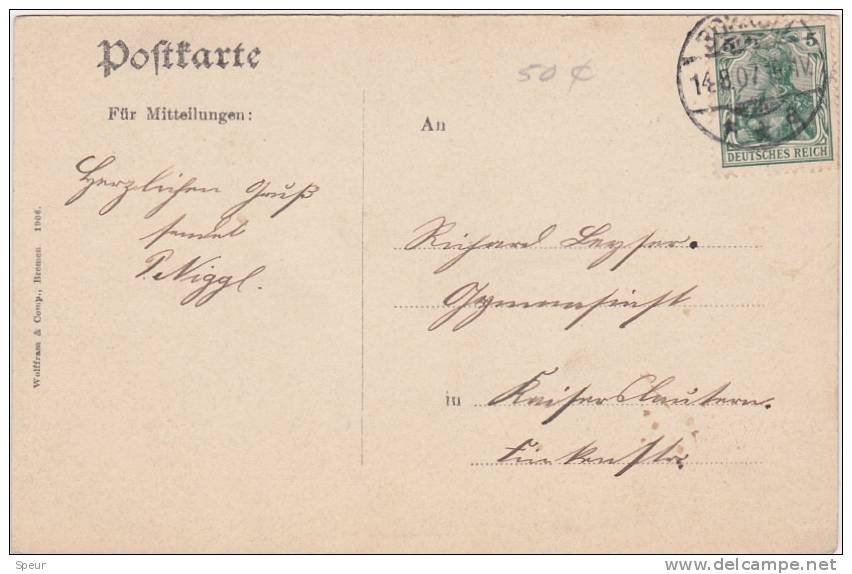 Postkarte
Für Mitteilungen:
50 ¢
An
5
14.8.07
DEUTSCHES REICH
Herzlichen Gruß
sendet
P. Niggl.
Richard Leyser.
Gymnasiast
in Kaiserslautern.
Wolffram & Comp., Bremen 1906.
Speur
delcampe.net